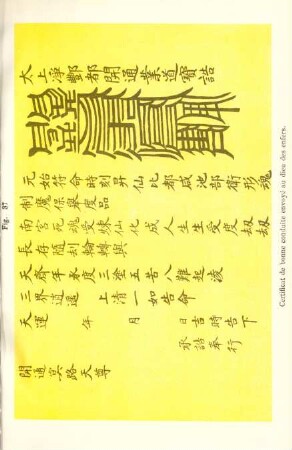 Fig. 37
太上淨酆都開通業道寶誥
元始符命時刻昇仙北都咸池部衛形魂
制魔保舉度品
南宮死魂受煉仙化成人生生受度劫劫
長存隨劫輪轉與
天齊年永度三塗五苦八難超凌
三界逍遙 上清一如告命
天運 年 月 日吉時告下
承誥奉行
開通冥路天尊
Certificat de bonne conduite envoyé au dieu des enfers.